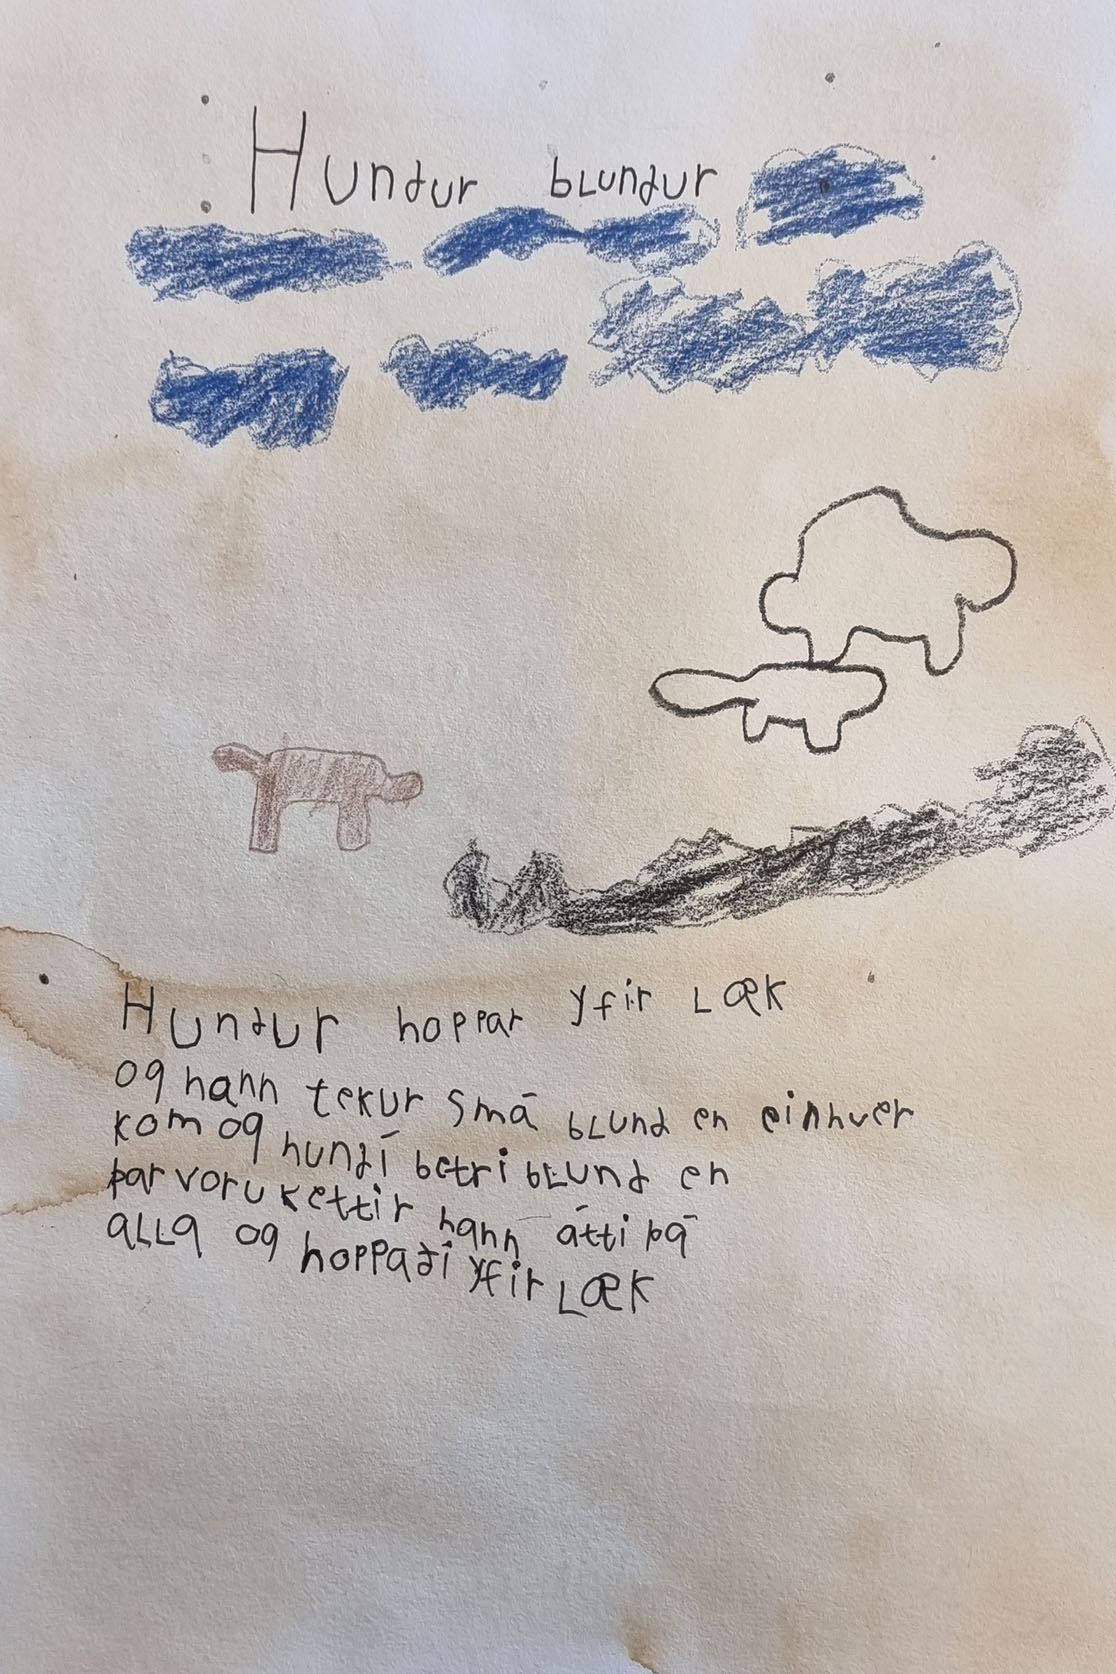 Hundur blundur
Hundur hoppar yfir læk
og hann tekur smá blund en einhver
kom og hundí betri blund en
þar voru kettir hann átti þá
alla og hoppaði yfir læk